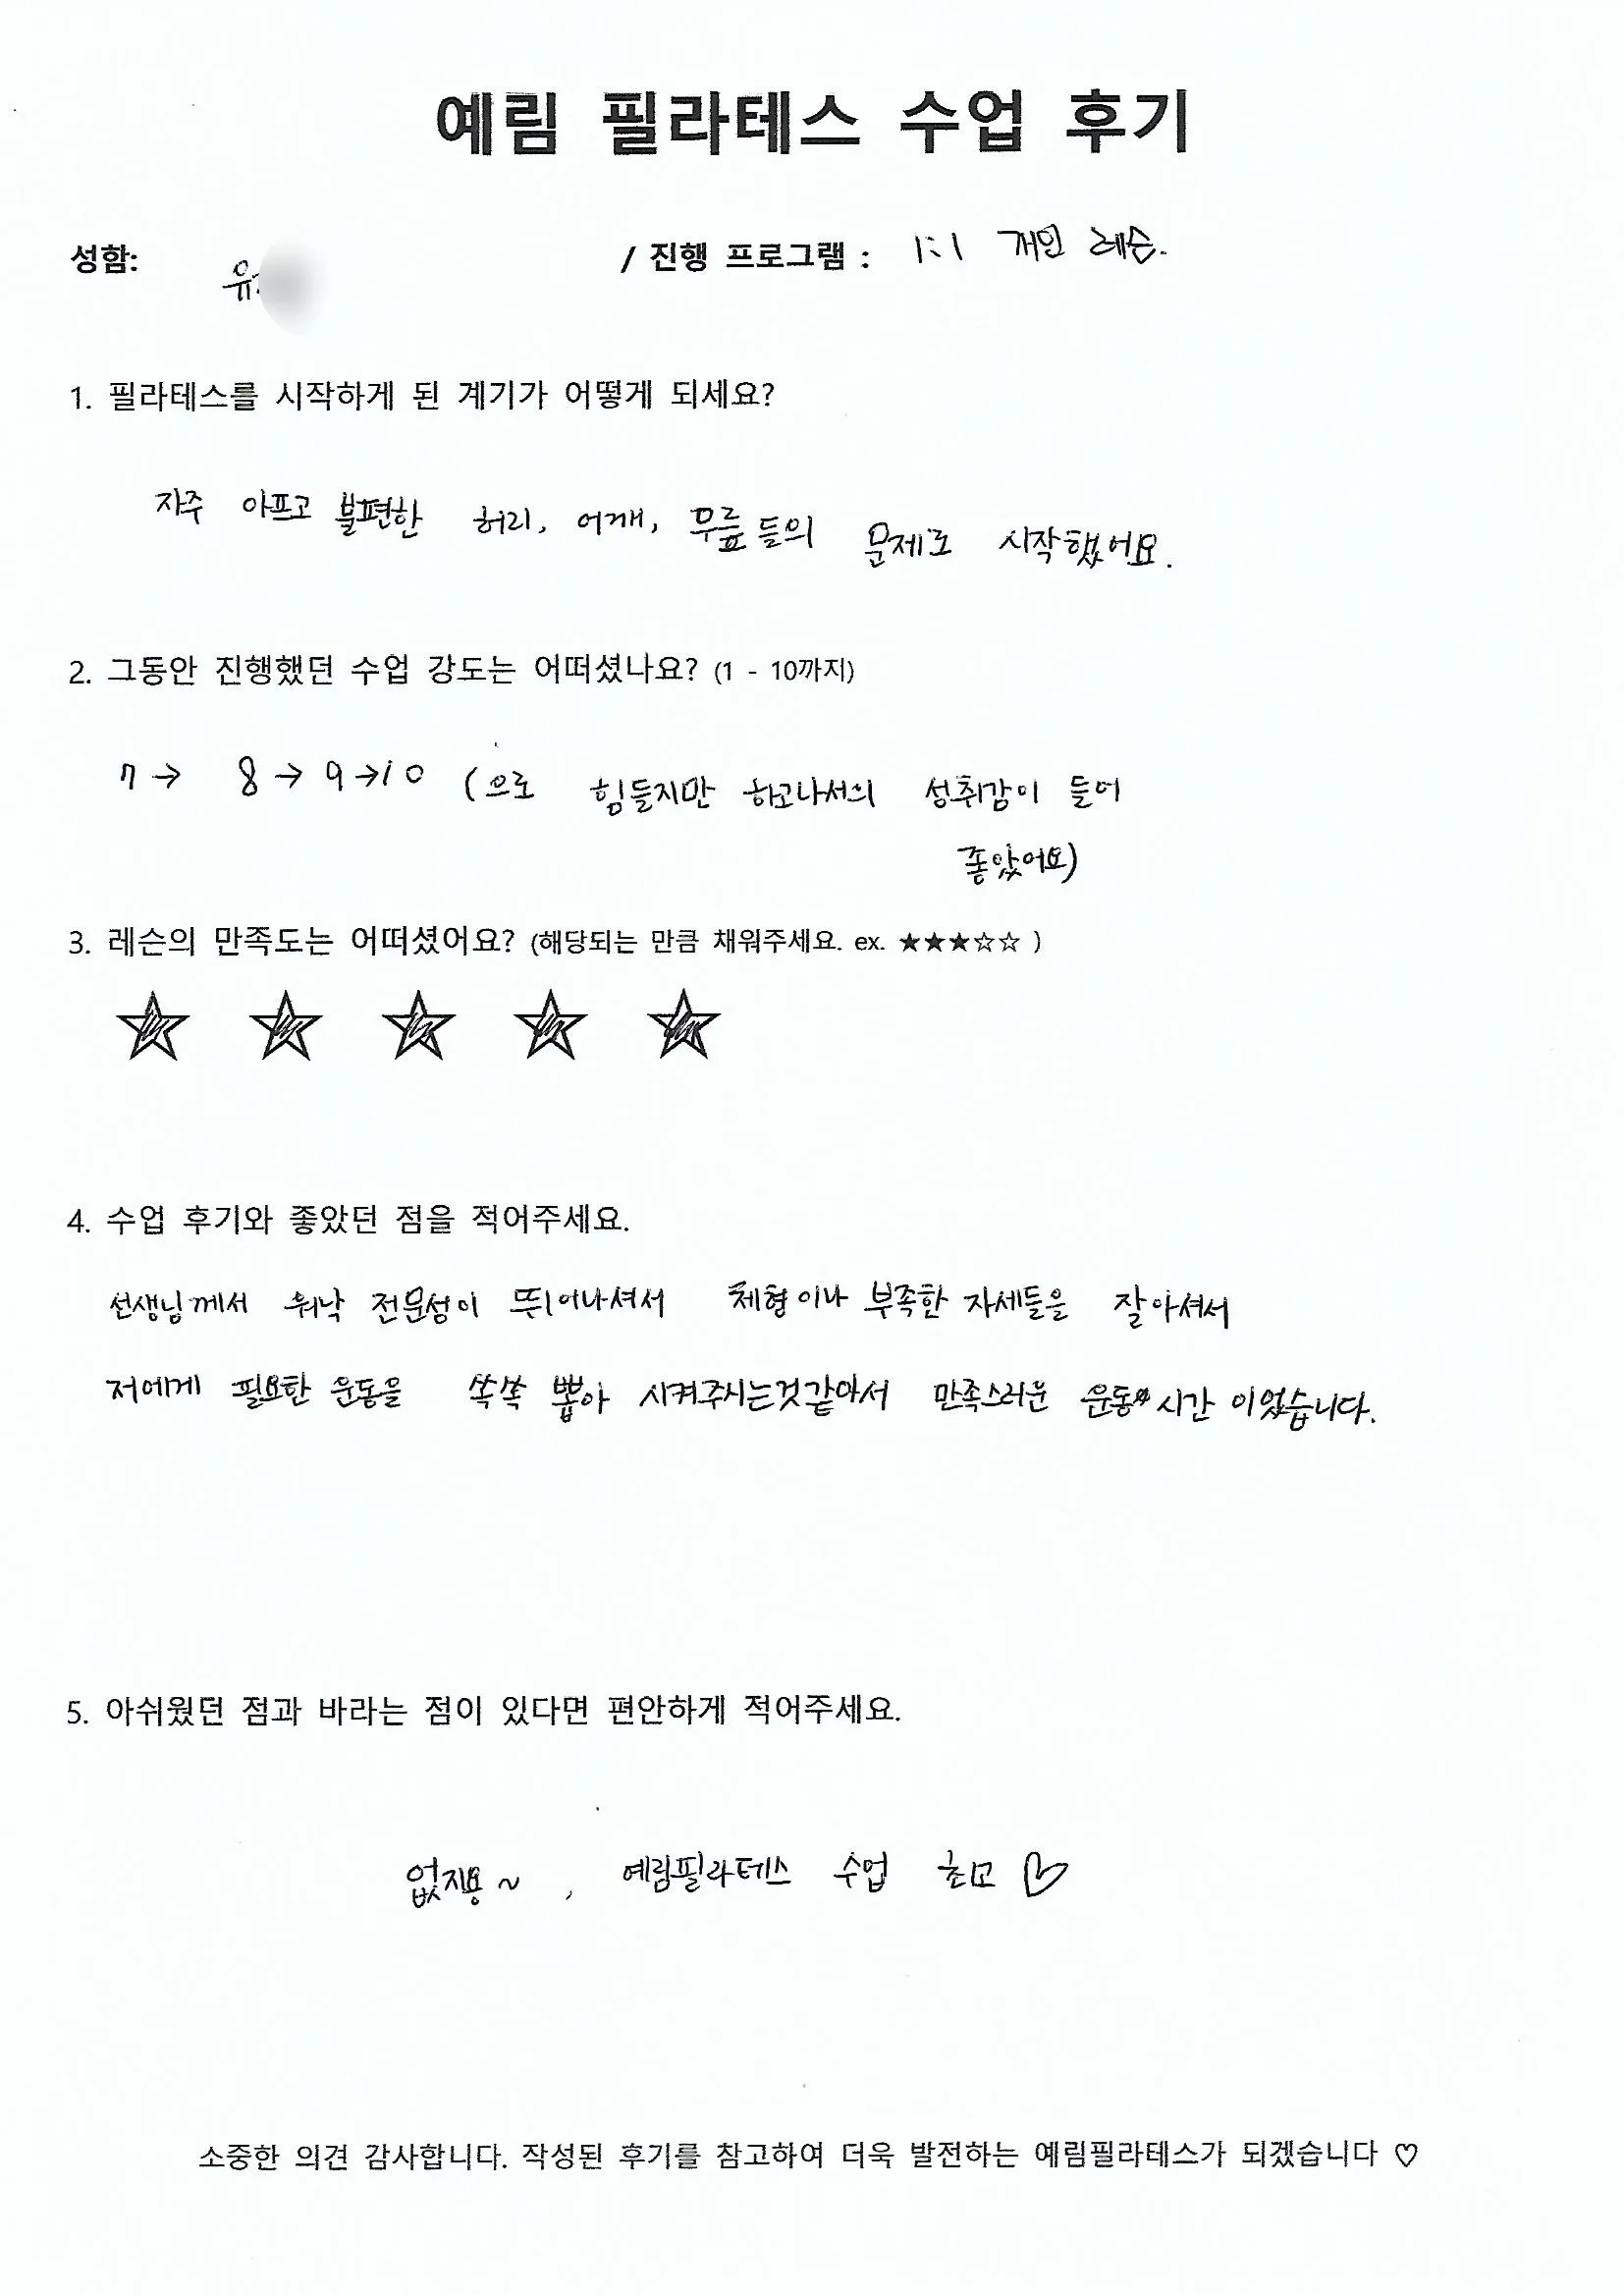 예림 필라테스 수업 후기
성함: 유 / 진행 프로그램 : 1:1 개인 레슨.
1. 필라테스를 시작하게 된 계기가 어떻게 되세요?
자주 아프고 불편한 허리, 어깨, 무릎들의 문제로 시작했어요.
2. 그동안 진행했던 수업 강도는 어떠셨나요? (1 - 10까지)
7 → 8 → 9 → 10 (으로 힘들지만 하고나서의 성취감이 들어
좋았어요)
3. 레슨의 만족도는 어떠셨어요? (해당되는 만큼 채워주세요. ex. ★★★☆☆ )
★ ★ ★ ★ ★
4. 수업 후기와 좋았던 점을 적어주세요.
선생님께서 워낙 전문성이 뛰어나셔서 체형이나 부족한 자세들을 잘아셔서
저에게 필요한 운동을 쏙쏙 뽑아 시켜주시는것같아서 만족스러운 운동 시간 이었습니다.
5. 아쉬웠던 점과 바라는 점이 있다면 편안하게 적어주세요.
없지용~ , 예림필라테스 수업 초모 ♡
소중한 의견 감사합니다. 작성된 후기를 참고하여 더욱 발전하는 예림필라테스가 되겠습니다 ♡